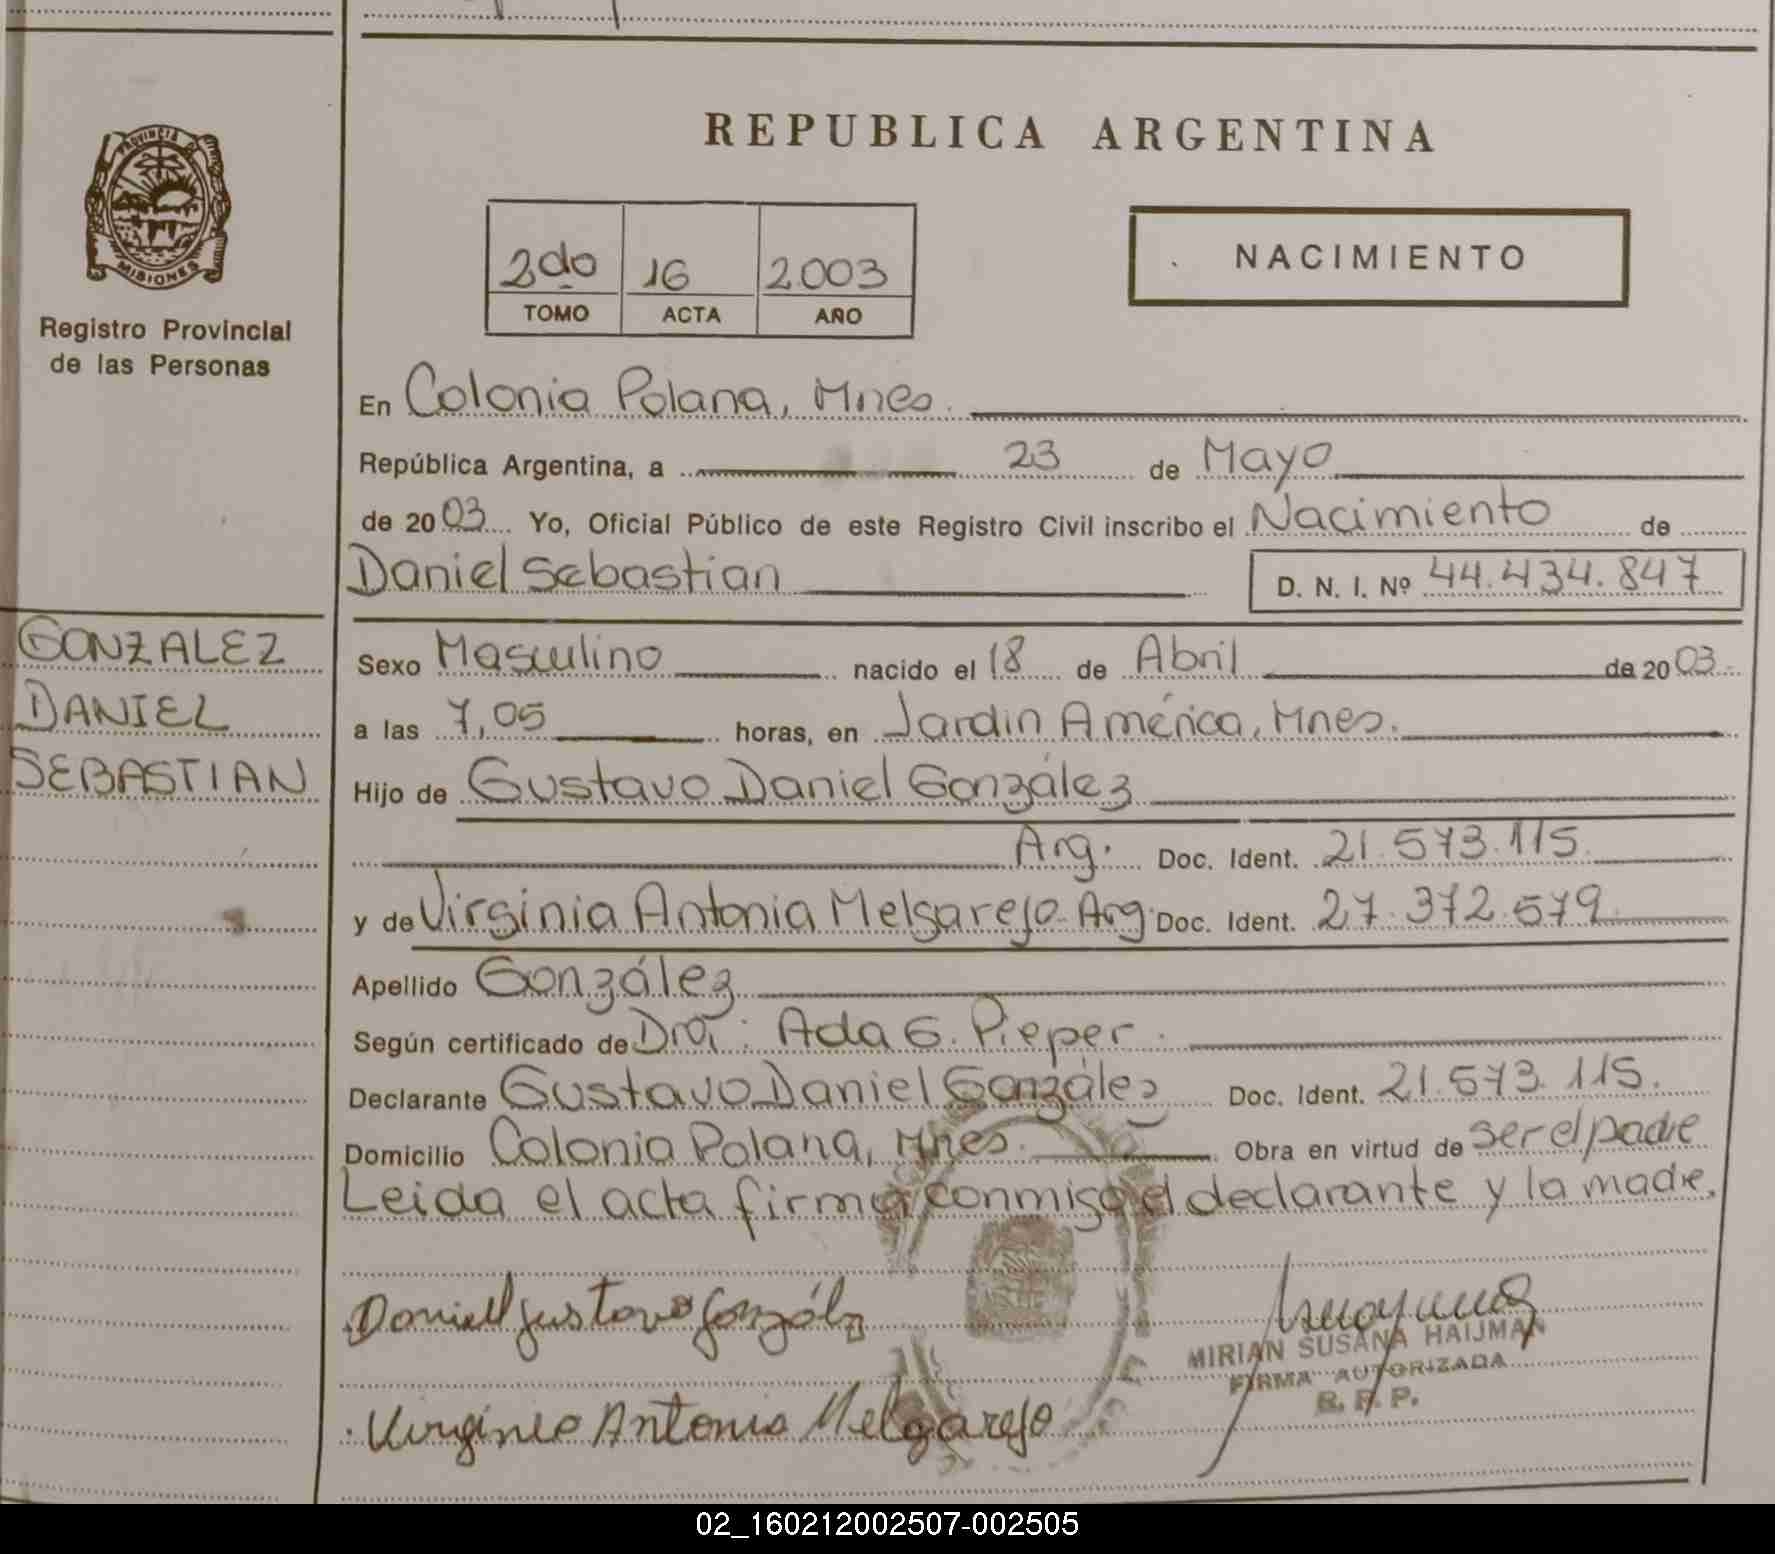 PROVINCIA DE
MISIONES
Registro Provincial
de las Personas
GONZALEZ
DANIEL
SEBASTIAN
REPUBLICA ARGENTINA
2do 16 2.003
TOMO ACTA AÑO
NACIMIENTO
En Colonia Polana, Mnes.
República Argentina, a 23 de Mayo
de 2003 Yo, Oficial Público de este Registro Civil inscribo el Nacimiento de
Daniel Sebastian D. N. I. Nº 44.434.847
Sexo Masculino nacido el 18 de Abril de 2003
a las 7,05 horas, en Jardin América, Mnes.
Hijo de Gustavo Daniel González
Arg. Doc. Ident. 21.573.115
y de Virginia Antonia Melgarejo Arg. Doc. Ident. 27.372.579
Apellido González
Según certificado de Dra: Ada G. Pieper.
Declarante Gustavo Daniel González Doc. Ident. 21.573.115.
Domicilio Colonia Polana, Mnes. Obra en virtud de ser el padre
Leida el acta firma conmigo el declarante y la madre.
Daniel Gustavo González
MIRIAN SUSANA HAIJMAN
FIRMA AUTORIZADA
R. P. P.
Virginia Antonia Melgarejo
02_160212002507-002505